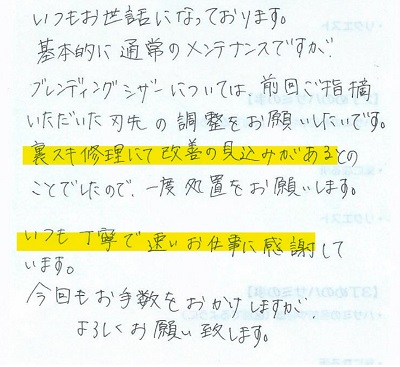 いつもお世話になっております。
基本的に通常のメンテナンスですが、
ブレンディングシザーについては、前回ご指摘
いただいた刃先の調整をお願いしたいです。
裏スキ修理にて改善の見込みがあるとの
ことでしたので、一度処置をお願いします。
いつも丁寧で速いお仕事に感謝して
います。
今回もお手数をおかけしますが、
よろしくお願い致します。